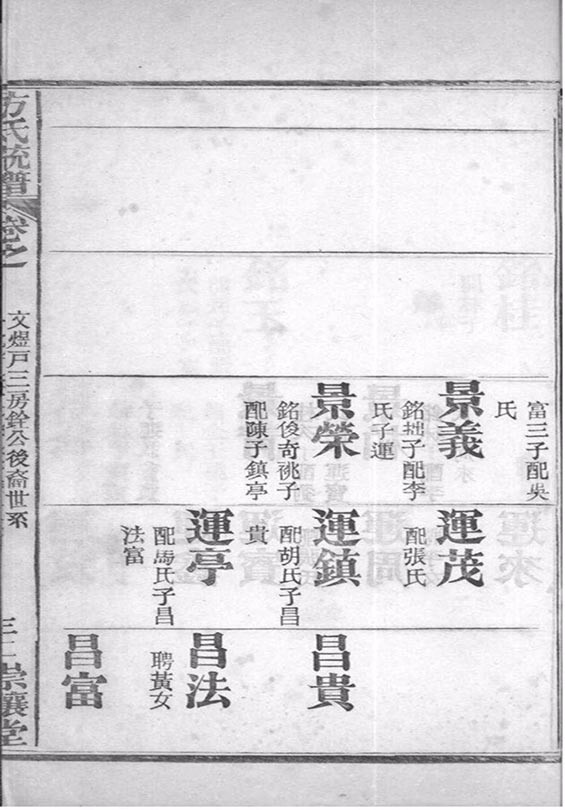 富三子配吳
氏
景義
銘拙子配李
氏子運
景榮
銘俊奇祧子
配陳子鎮亭
運茂
配張氏
運鎮
配胡氏子昌
貴
運亭
配馬氏子昌
法富
昌貴
昌法
聘黃女
昌富
方氏統譜
卷之
文煜戶三房銓公後裔世系
崇讓堂